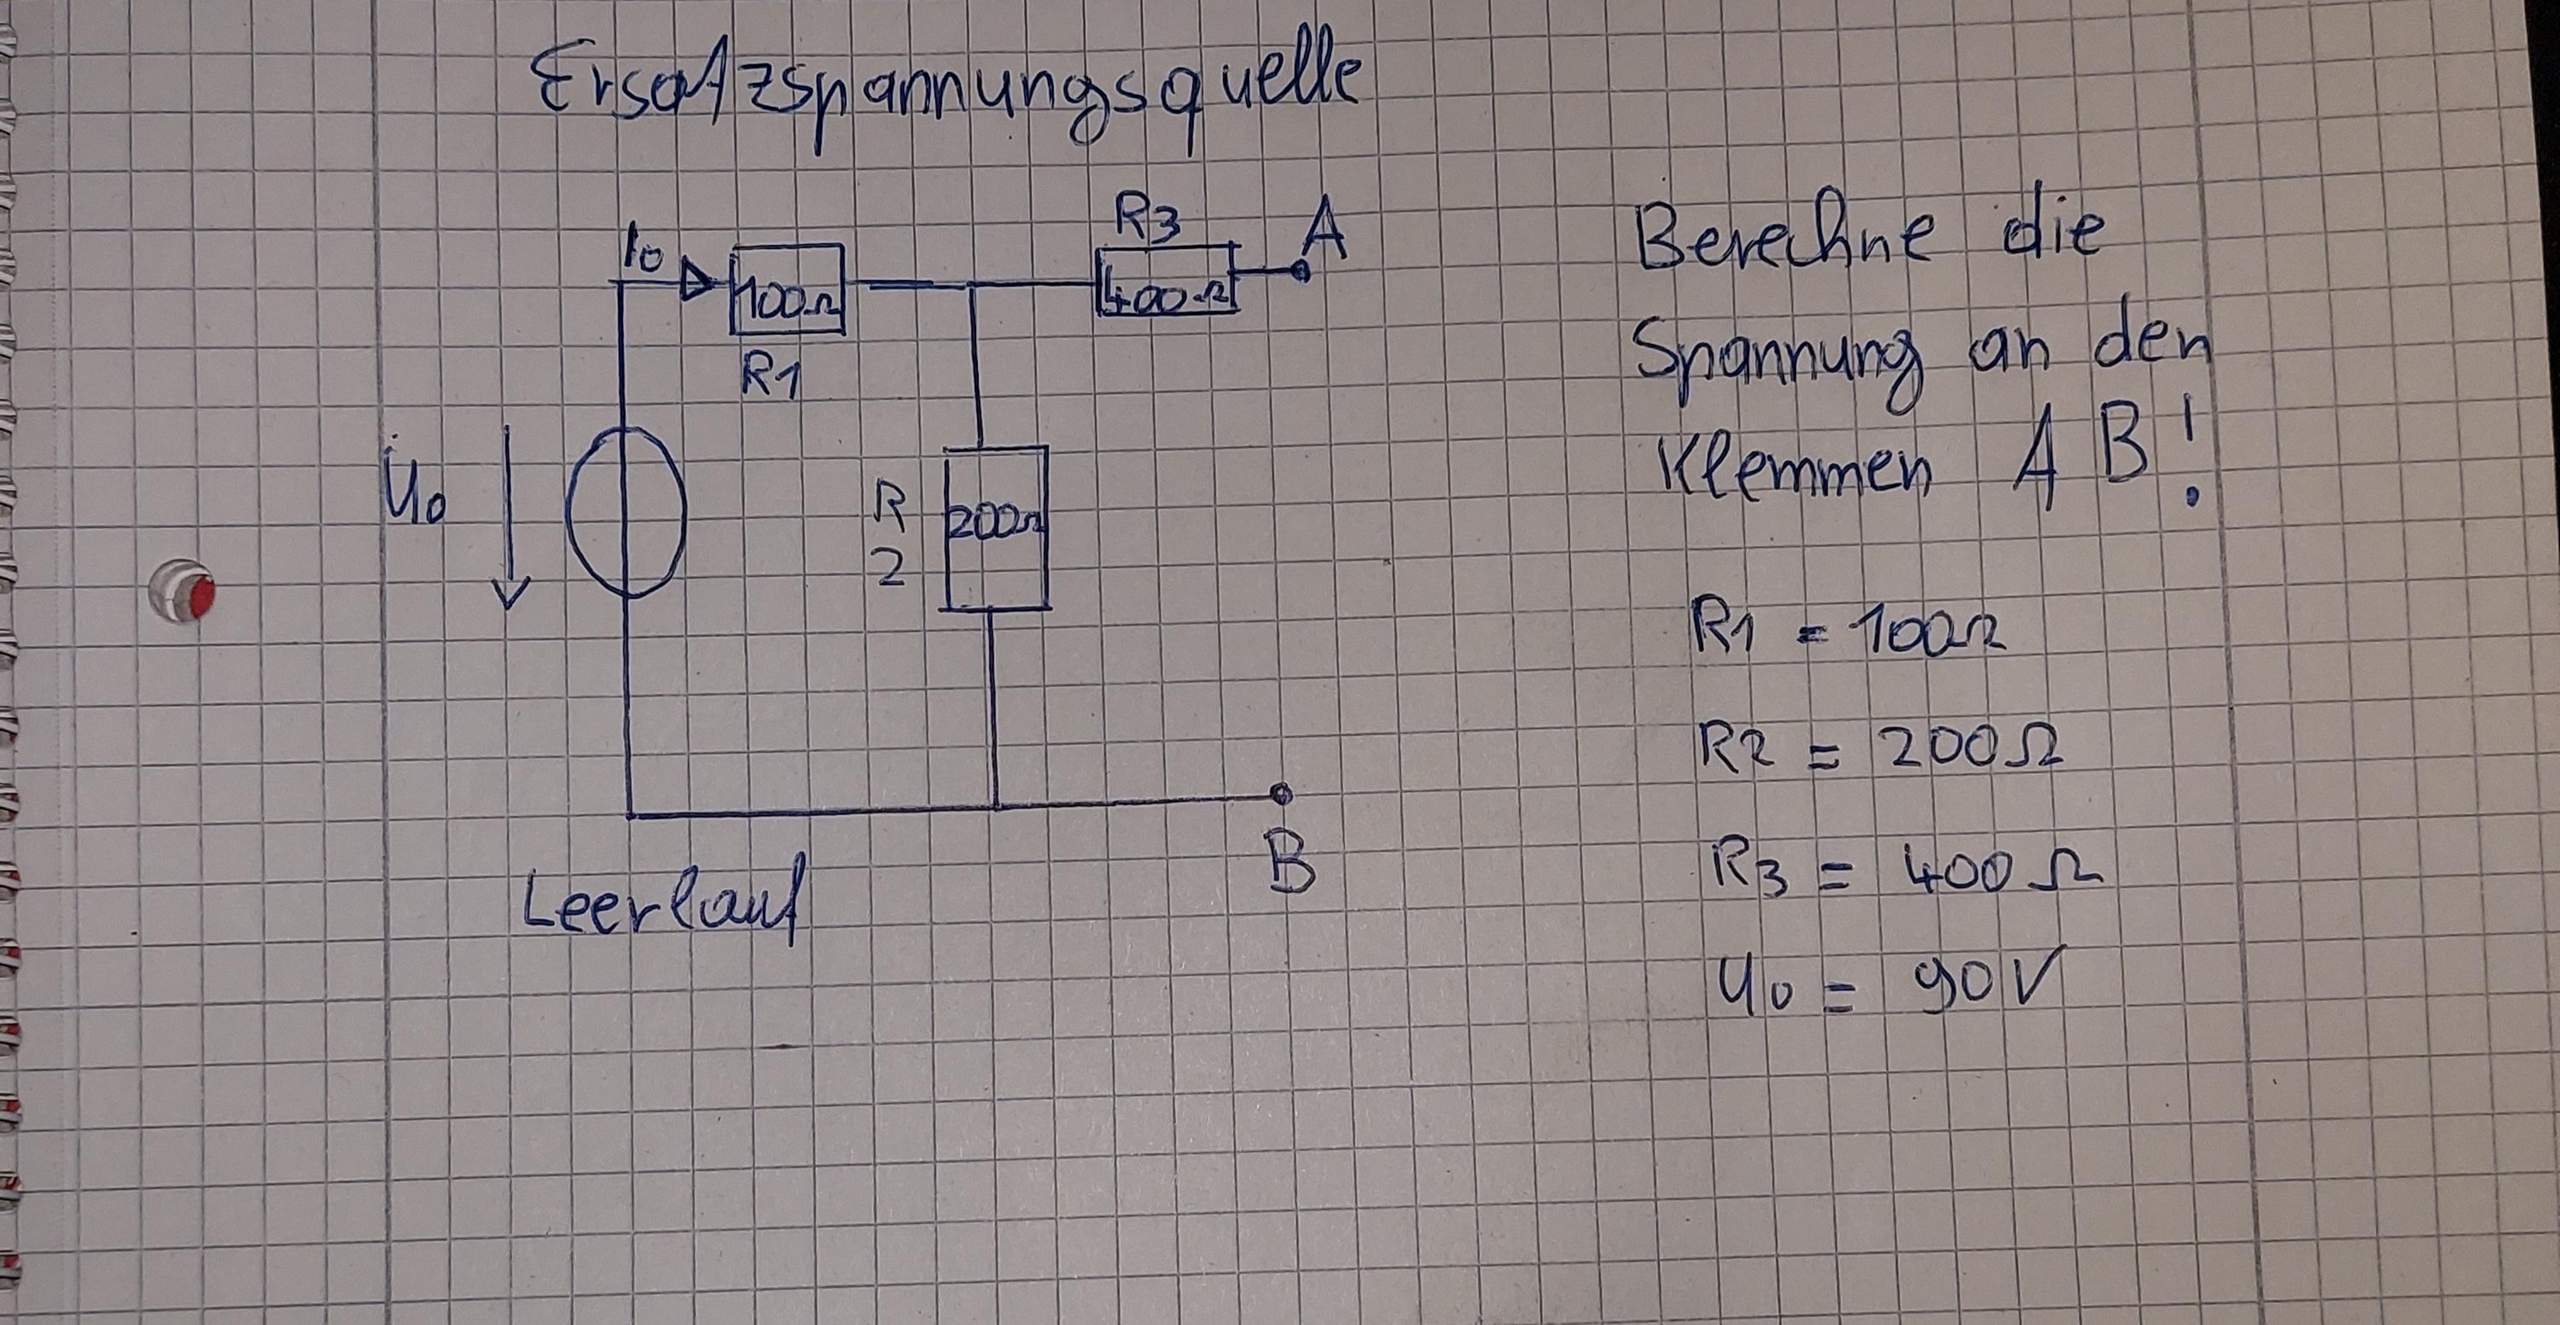 Ersatzspannungsquelle
I0
100Ω
R1
R3
400Ω
A
U0
R
2
200Ω
B
Leerlauf
Berechne die
Spannung an den
Klemmen A B!
R1 = 100Ω
R2 = 200Ω
R3 = 400Ω
U0 = 90V